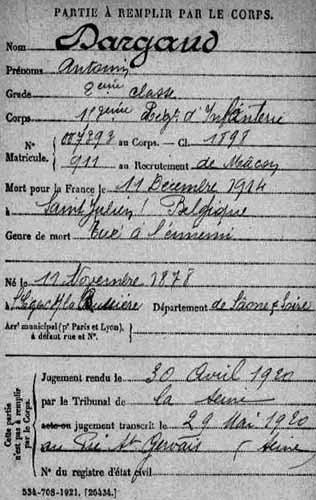 PARTIE À REMPLIR PAR LE CORPS.
Nom Dargaud
Prénoms Antoine
Grade 2ème classe
Corps Régt d'Infanterie
N° 007393 au Corps. — Cl. 1898
Matricule. 911 au Recrutement de Mâcon
Mort pour la France le 11 Décembre 1914
à Saint Julien Belgique
Genre de mort Tué à l'ennemi
Né le 11 Novembre 1878
à la Bussière Département de Saône & Loire
Arrt municipal (pr Paris et Lyon), à défaut rue et N°.
Cette partie n'est pas à remplir par le Corps.
Jugement rendu le 30 Avril 1920
par le Tribunal de la Seine
acte ou jugement transcrit le 29 Mai 1920
au Pré St Gervais (Seine)
N° du registre d'état civil
534-708-1921. [26434.]